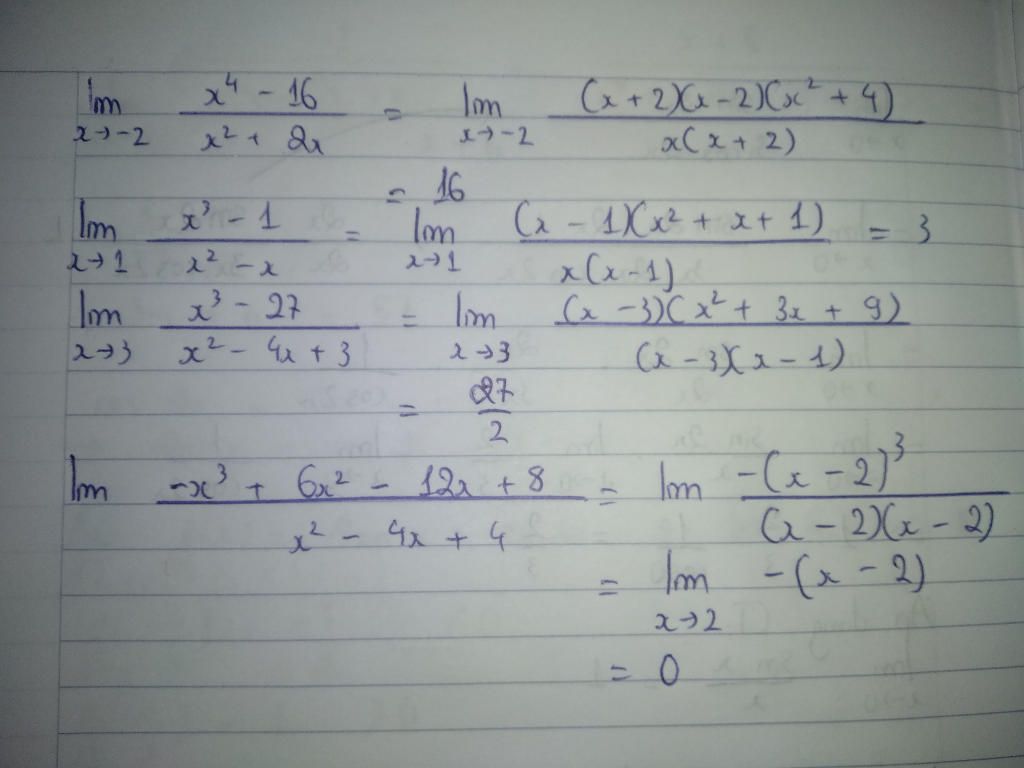 lim x→-2 (x⁴ - 16)/(x² + 2x) = lim x→-2 ((x+2)(x-2)(x² + 4))/(x(x+2))
= 16
lim x→1 (x³ - 1)/(x² - x) = lim x→1 ((x - 1)(x² + x + 1))/(x(x-1)) = 3
lim x→3 (x³ - 27)/(x² - 4x + 3) = lim x→3 ((x - 3)(x² + 3x + 9))/((x - 3)(x - 1))
= 27/2
lim (-x³ + 6x² - 12x + 8)/(x² - 4x + 4) = lim (-(x - 2)³)/((x - 2)(x - 2))
= lim x→2 -(x - 2)
= 0